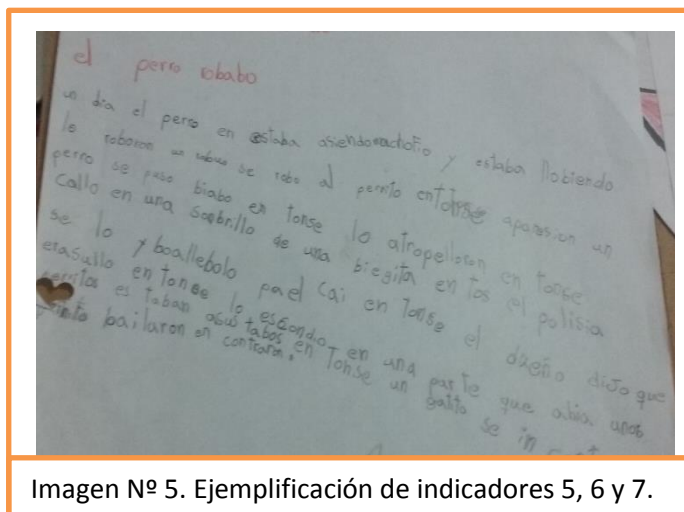 el perro robabo
un dia el perro en estaba y estaba llobiendo
lo roboron un se robo al perrito un
perro se puso biabo en tonse lo atropelloron en tonse
callo en una de una biegita en tos el polisia
se lo y boallebolo pael cai en tonse el dueño dijo que
erasullo en tonse lo escondio en una parte que abia unos
perritos es taban asustabos en tonse un gatito se in
bailaron en
Imagen Nº 5. Ejemplificación de indicadores 5, 6 y 7.